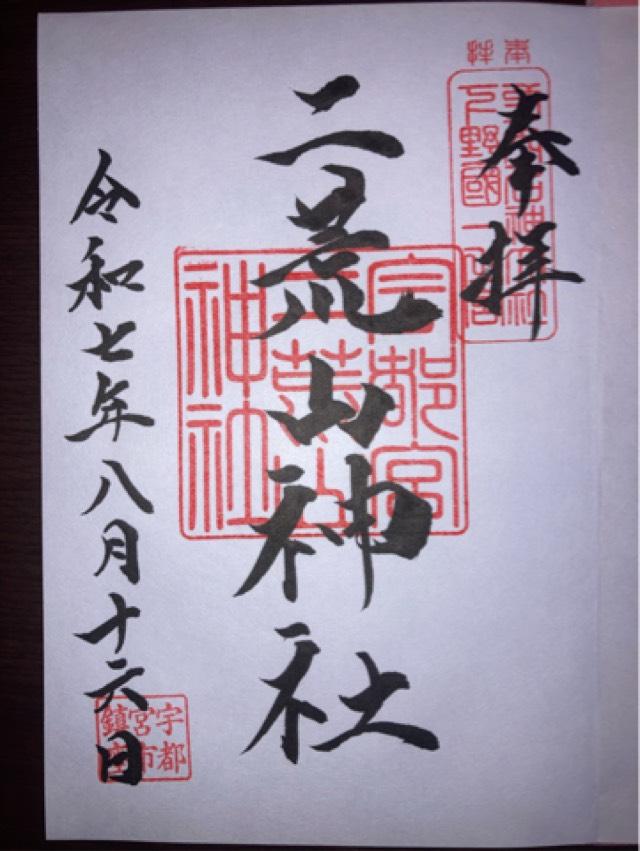 奉拝
奉拝
下野國一之宮
二荒山神社
宇都宮
二荒山
神社
令和七年八月十六日
宇都
宮市
鎮座